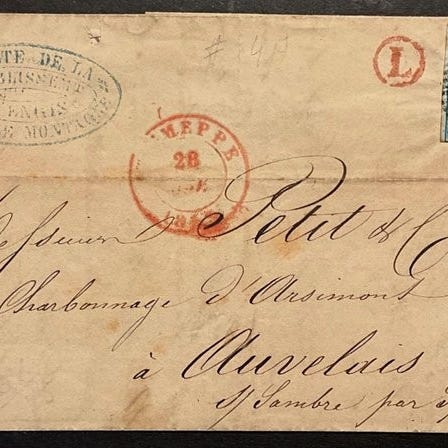 # 4
L
TE DE LA
BLISMENT
ENGIS
E MONTAGNE
EMEPPE
28
18
Messieurs Petit & C
Charbonnage d'Arsimont
à Auvelais
s/ Sambre par